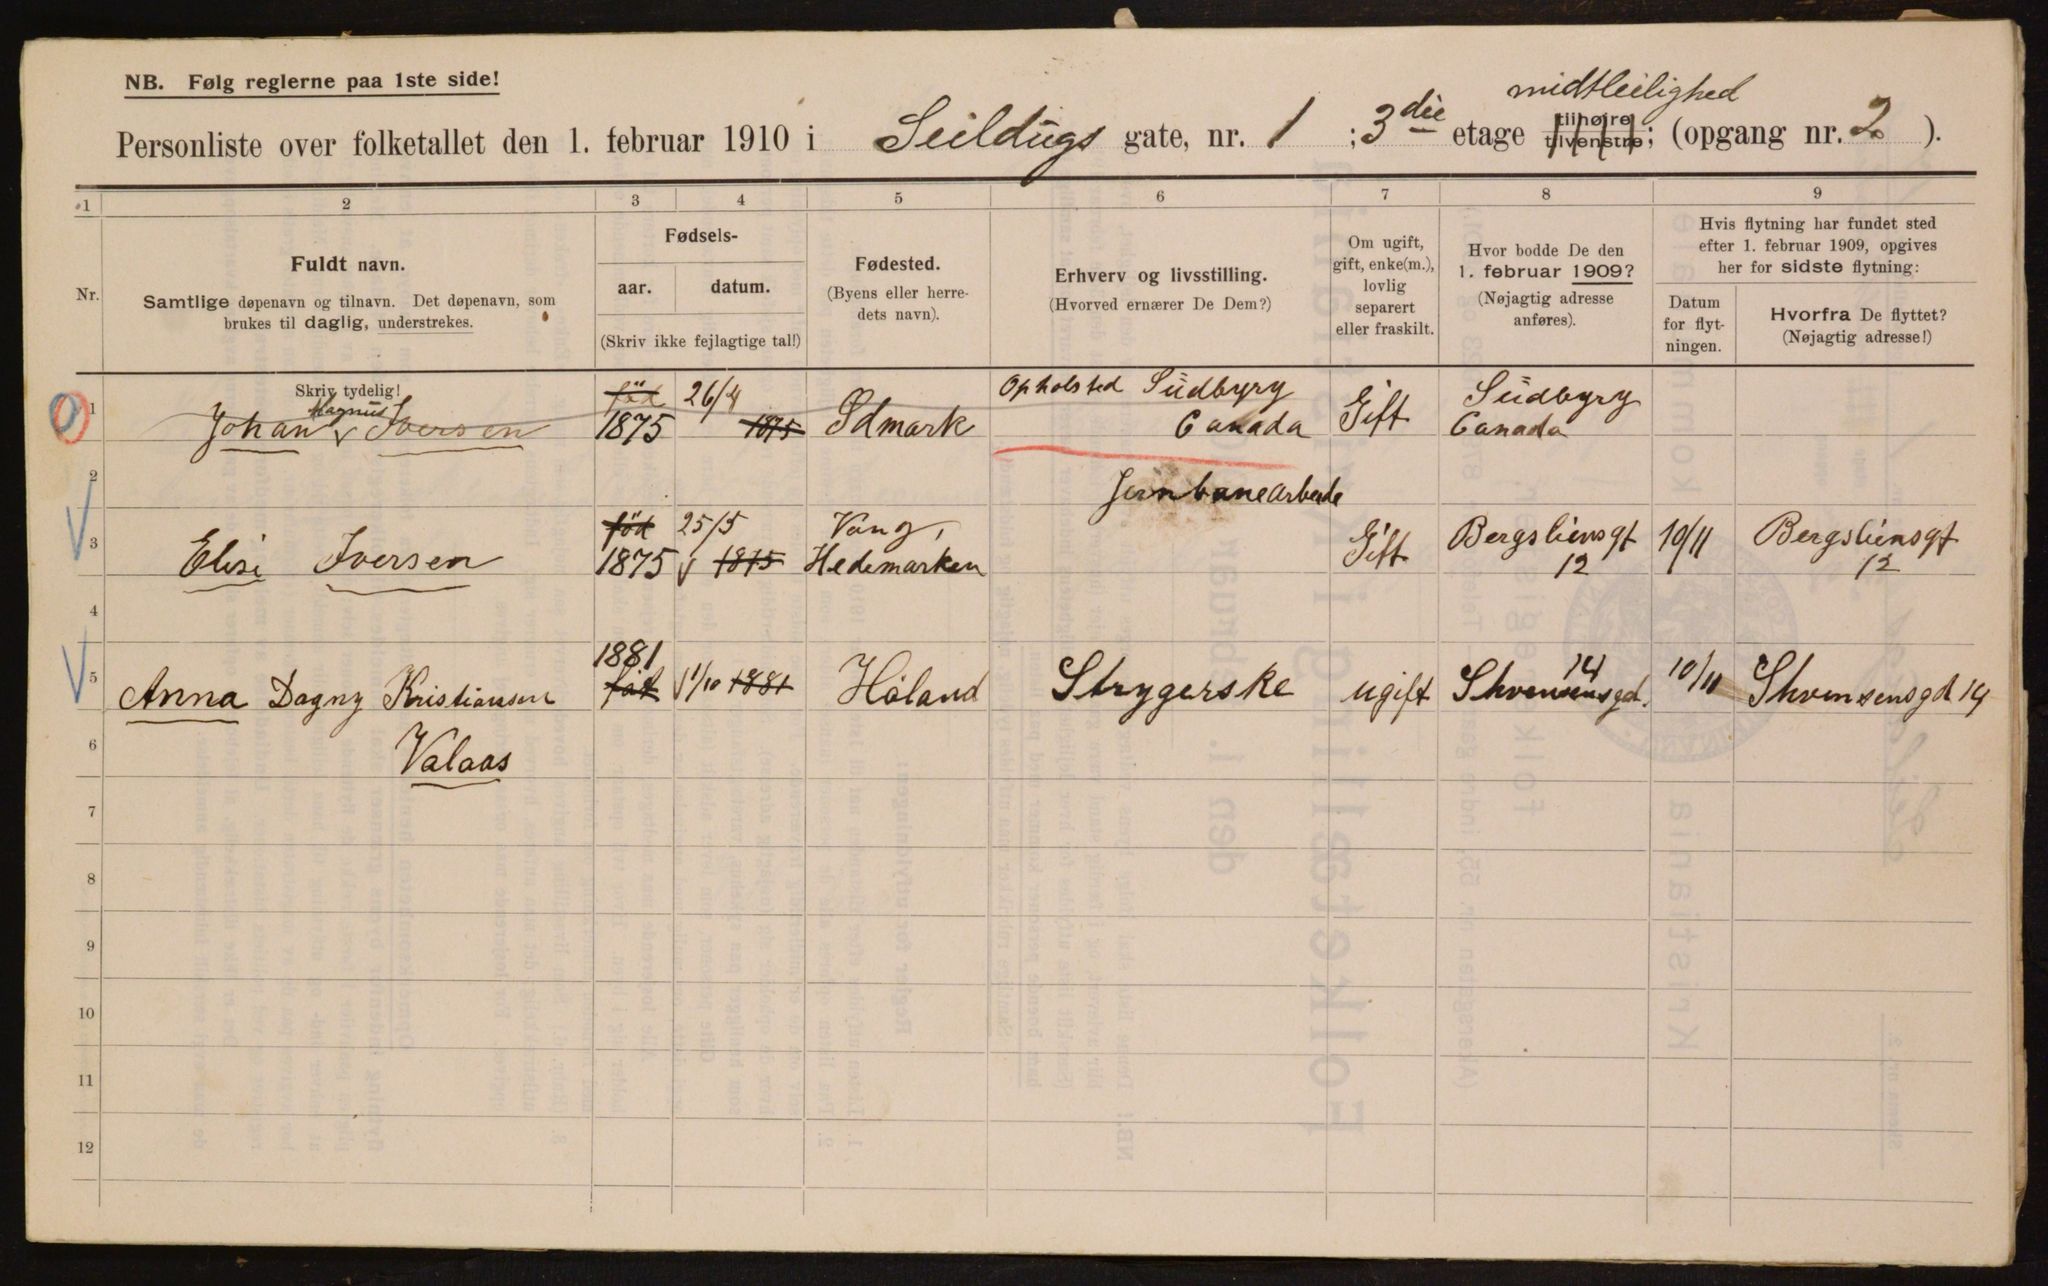 NB. Følg reglerne paa 1ste side!
midtleilighed
Personliste over folketallet den 1. februar 1910 i Seildugs gate, nr. 1 ; 3die etage tilhøjre tilvenstre; (opgang nr. 2 ).
1 2 3 4 5 6 7 8 9
Nr.
Fuldt navn.
Samtlige døpenavn og tilnavn. Det døpenavn, som
brukes til daglig, understrekes.
Fødsels-
aar. datum.
(Skriv ikke fejlagtige tal!)
Fødested.
(Byens eller herre-
dets navn).
Erhverv og livsstilling.
(Hvorved ernærer De Dem?)
Om ugift,
gift, enke(m.),
lovlig
separert
eller fraskilt.
Hvor bodde De den
1. februar 1909?
(Nøjagtig adresse
anføres).
Hvis flytning har fundet sted
efter 1. februar 1909, opgives
her for sidste flytning:
Datum
for flyt-
ningen.
Hvorfra De flyttet?
(Nøjagtig adresse!)
Skriv tydelig!
1 Johan Magnus Iversen född 1875 26/4 1875 Ødmark Opholsted Südbyry Canada Gift Südbyry Canada
2 Jernbanearbeide
3 Elise Iversen född 1875 25/5 1875 Vang, Hedemarken Gift Bergsliensgt 12 10/11 Bergsliensgt 12
4
5 Anna Dagny Kristiansen 1881 föt 1/10 1881 Høland Strygerske ugift 14 10/11
6 Valaas
7
8
9
10
11
12